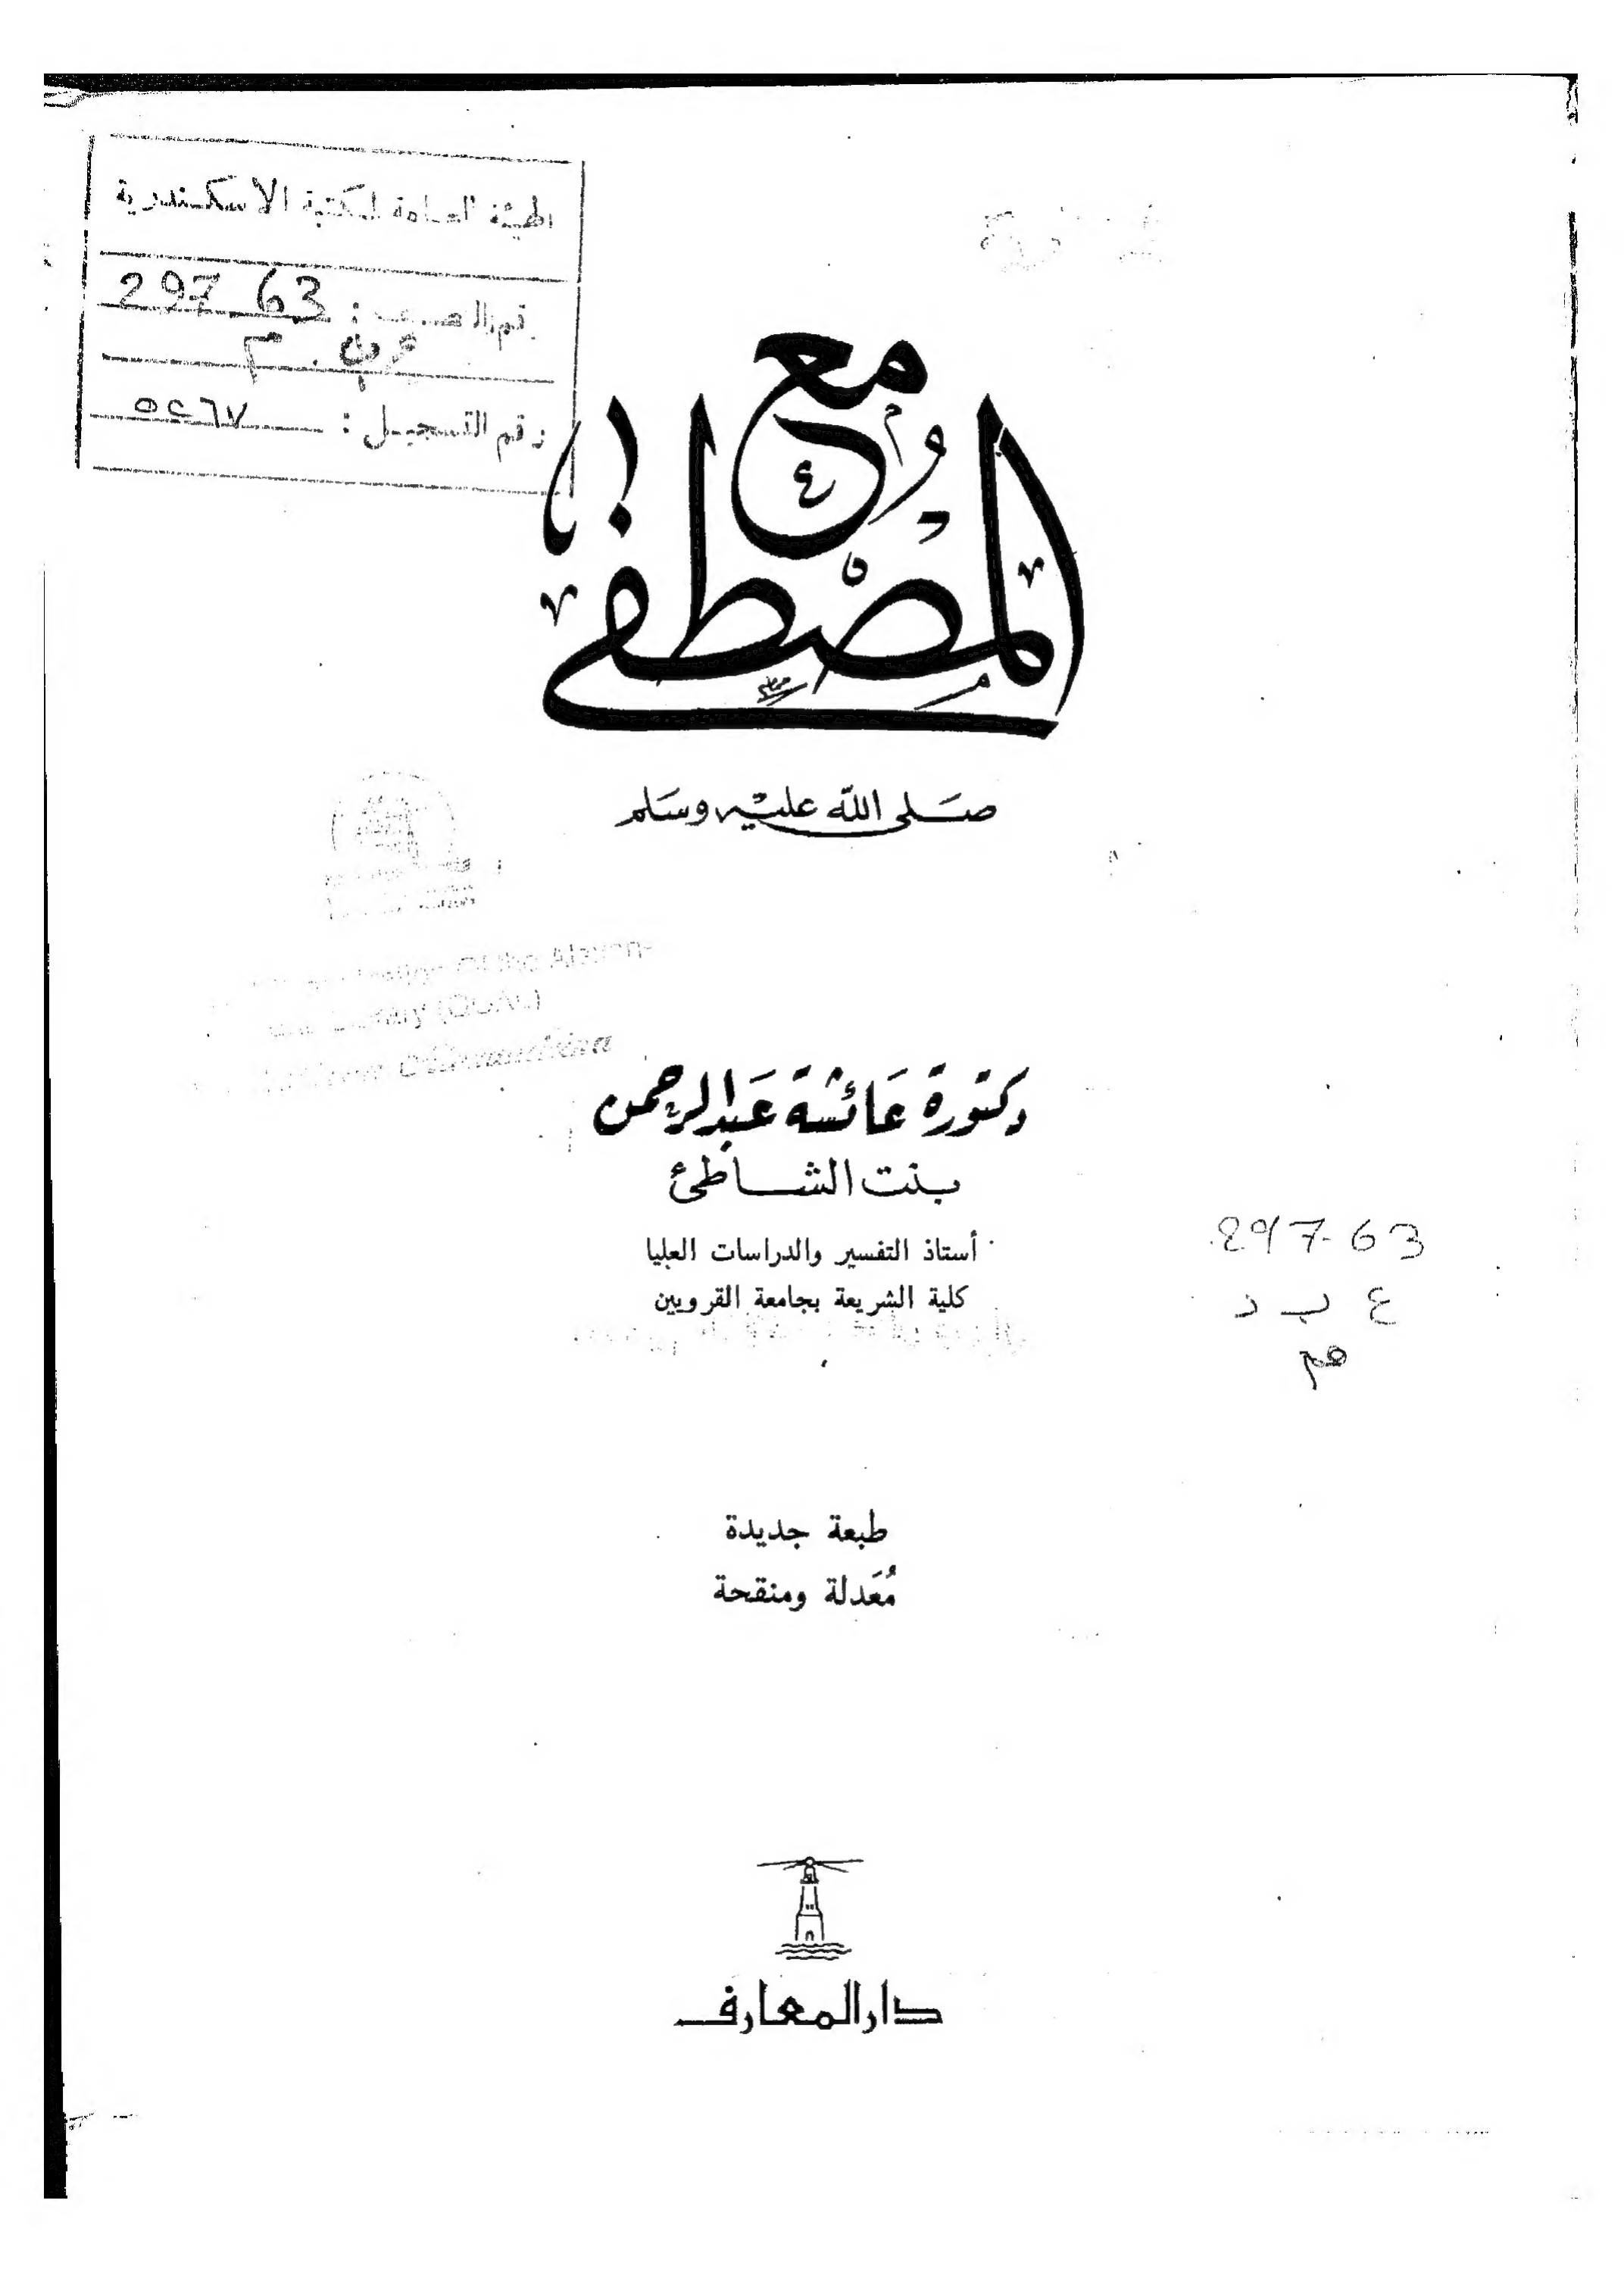 الهيئة العامة لمكتبة الاسكندرية
297.63
رقم التسجيل : ٥٢٦٧
مع
المصطفى
صَلى الله عليْه وسَلم
دكتورة عَائشة عَبد الرحمن
بنت الشاطئ
أستاذ التفسير والدراسات العليا
كلية الشريعة بجامعة القرويين
297.63
ع ب د
طبعة جديدة
مُعَدلة ومنقحة
دار المعارف